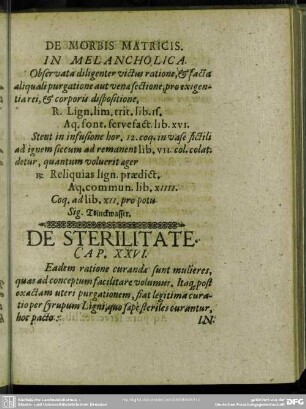 DE MORBIS MATRICIS.
IN MELANCHOLICA.
Observata diligenter victus ratione, & facta
aliquali purgatione aut venæ sectione, pro exigen-
tia rei, & corporis dispositione,
R. Lign. sim. trit. lib. iſ.
Aq. font. fervefact. lib. xvi.
Stent in infusione hor. 12. coq. in vase fictili
ad ignem siccum ad remanent lib. vii. col. colat.
detur, quantum voluerit æger
R. Reliquias lign. prædict.
Aq. commun. lib. xiiii.
Coq. ad lib. xii. pro potu
Sig. Trinckwasser.
DE STERILITATE.
CAP. XXVI.
Eadem ratione curandæ sunt mulieres,
quas ad conceptum facilitare volumus. Itaq; post
exactam uteri purgationem, fiat legitima cura-
tio per syrupum Ligni, quo sæpè steriles curantur,
hoc pacto:
IN